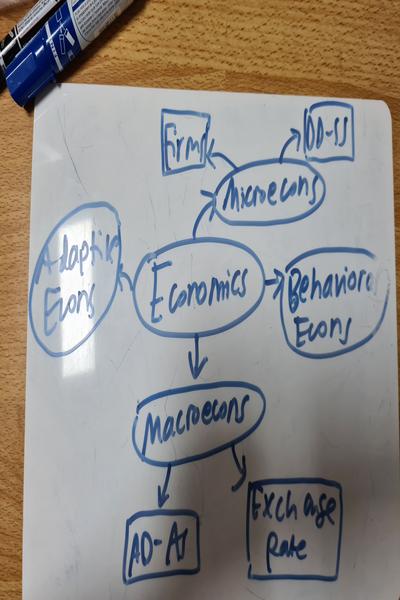 Firms
DD-SS
Microecons
Adaptive
Econs
Economics
Behavioral
Econs
Macroecons
AD-AS
Exchange
Rate